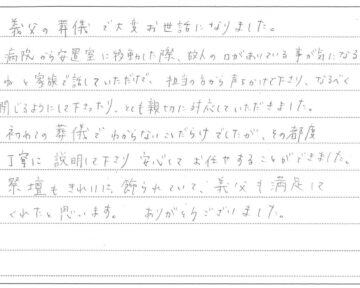 義父の葬儀で大変お世話になりました。
病院から安置室に移動した際、故人の口があいている事が気になる
ねと家族で話していただけで、担当の方から声をかけて下さり、なるべく
閉じるようにして下さったり、とても親切に対応していただきました。
初めての葬儀でわからないことだらけでしたが、その都度
丁寧に説明して下さり安心してお任せすることができました。
祭壇もきれいに飾られていて、義父も満足して
くれたと思います。 ありがとうございました。